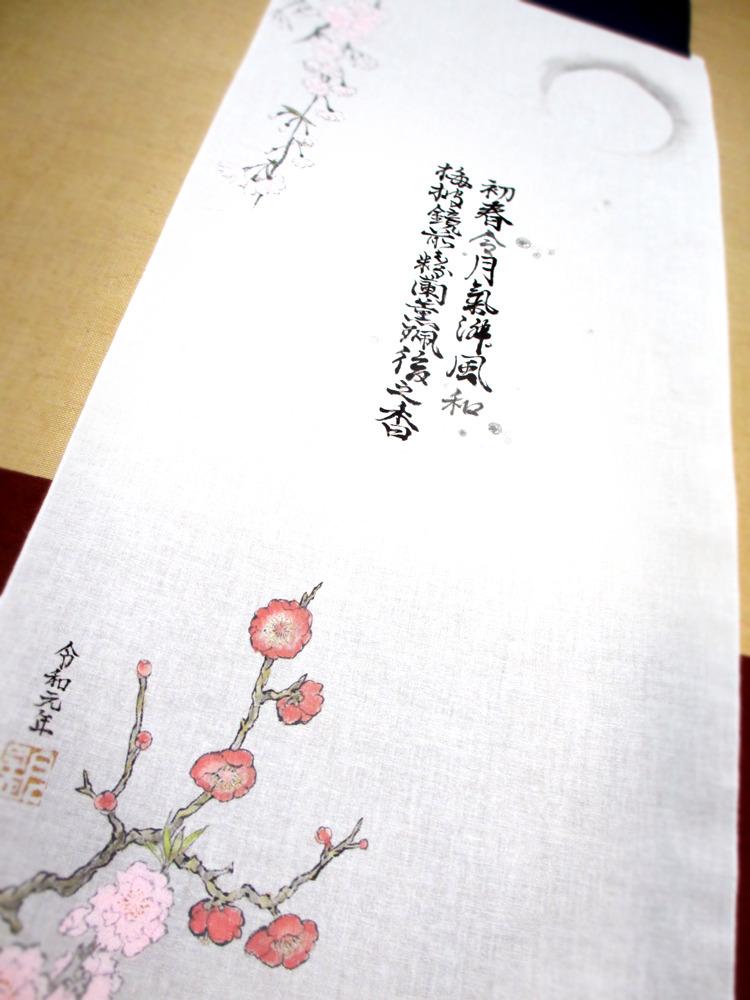 初春令月氣淑風和
梅披鏡前粉蘭薫珮後之香
令和元年